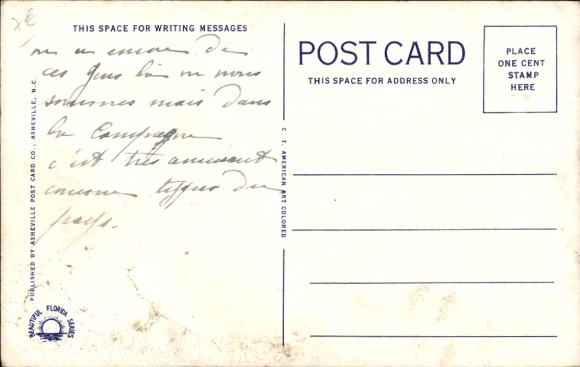 THIS SPACE FOR WRITING MESSAGES
on a encore de
ces gens là où nous
sommes mais dans
la Campagne
c'est très amusant
comme types du
pays.
PUBLISHED BY ASHEVILLE POST CARD CO., ASHEVILLE, N.C.
BEAUTIFUL FLORIDA SERIES
C. T. AMERICAN ART COLORED
POST CARD
THIS SPACE FOR ADDRESS ONLY
PLACE
ONE CENT
STAMP
HERE